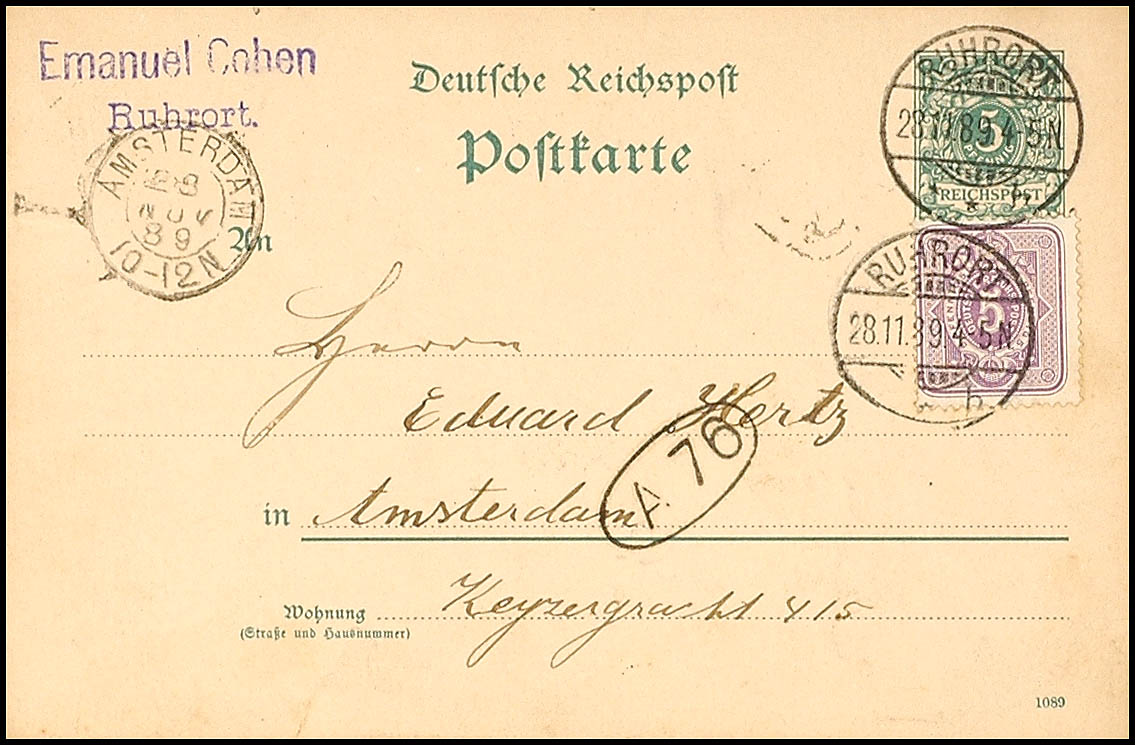 Emanuel Cohen
Ruhrort.
Deutsche Reichspost
Postkarte
RUHRORT
28.11.89.4-5N
* * h
5
PFENNIG
REICHSPOST
AMSTERDAM
28
NOV
89
10-12N
An
RUHRORT
28.11.89.4-5N
* h
5
Herrn
Eduard Hertz
A 76
in Amsterdam
Wohnung Keyzergracht 415
(Straße und Hausnummer)
1089